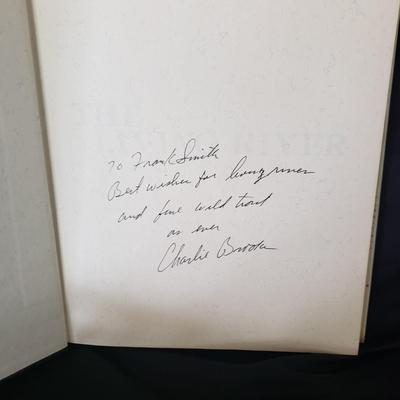 To Frank Smith
Best wishes for living rivers
and fine wild trout
as ever
Charlie Brooks
THE
LIVING RIVER